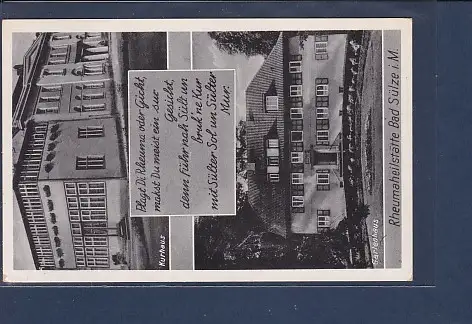 Plagt Di Rheuma oder Gicht,
makst Du makt ein suur
Gesicht,
denn führ nach Sült un
bruk ne Kur
mit Sülter Sol un Sülter
Mur.
Kurhaus
Rheumaheilstätte Bad Sülze i.M.